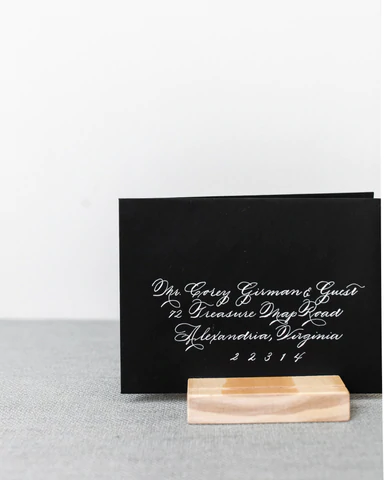 Mr. Corey Girman & Guest
72 Treasure Map Road
Alexandria, Virginia
22314